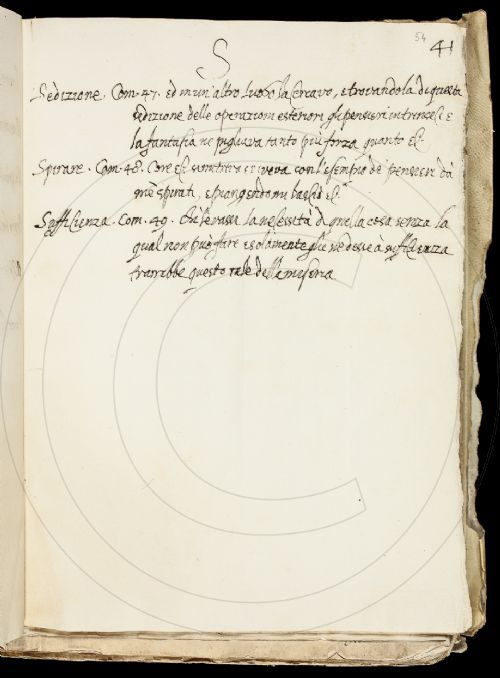 54
41
S
Sedizione. Com. 47. ed in un'altro luogo la cercavo, e trovandola di questa
sedizione delle operazioni esteriori gli pensieri intrinseci e
la fantasia ne pigliava tanto più forza quanto es.
Spirare. Com. 48. con l'esempio de pensieri dà
me spirati, e piangendo mi
Sufficienza. Com. 49. che levassi la necessità di quella cosa senza la
qual non può stare e solamente gli vedesse à sufficienza
trarrebbe questo tale della miseria